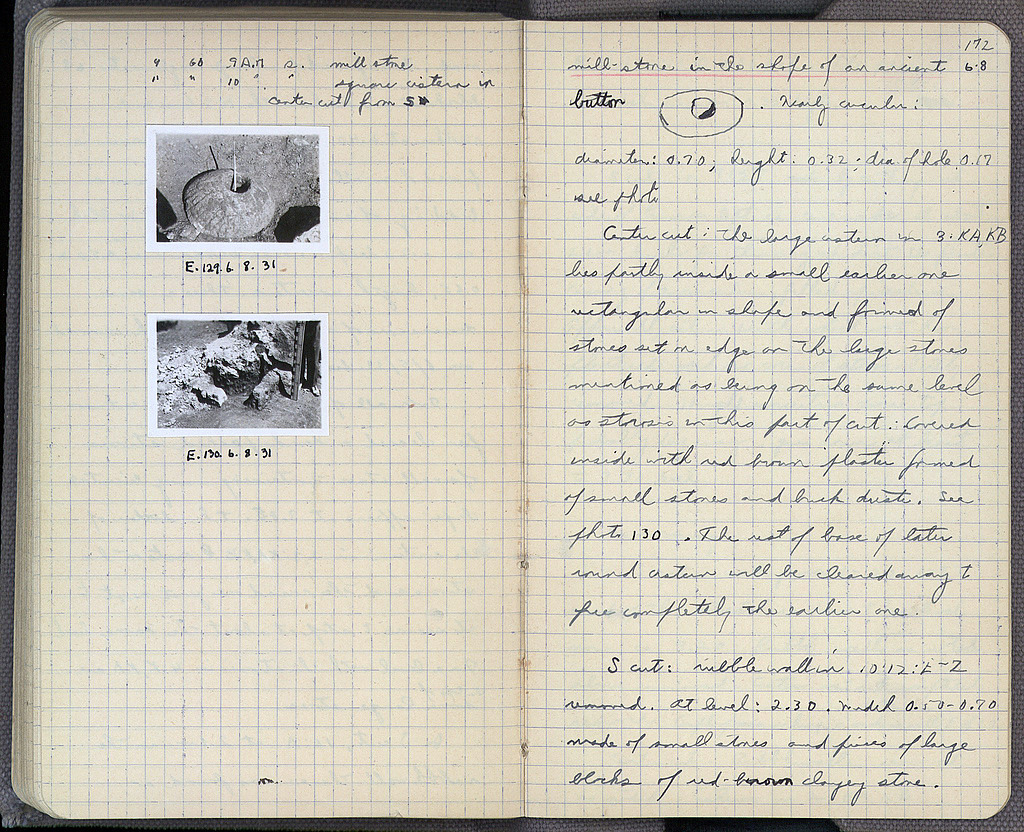 " 60 9 A.M S. mill stone
" " 10 " " square cistern in
center cut from S
E.129.6.8.31
E.130.6.8.31
172
mill-stone in the shape of an ancient 6·8
button . Nearly circular:
diameter: 0.70; height: 0.32; dia. of hole 0.17
see photo
Center cut: The large cistern in 3:KA,KB
lies partly inside a small earlier one
rectangular in shape and formed of
stones set on edge on the large stones
mentioned as being on the same level
as stosis in this part of cut. Covered
inside with red brown plaster formed
of small stones and brick dust. See
photo 130. The rest of base of later
round cistern will be cleared away to
free completely the earlier one.
S cut: rubble wall in 10·12:E-Z
removed. At level: 2.30. Width 0.50-0.70
made of small stones and pieces of large
blocks of red-brown clayey stone.